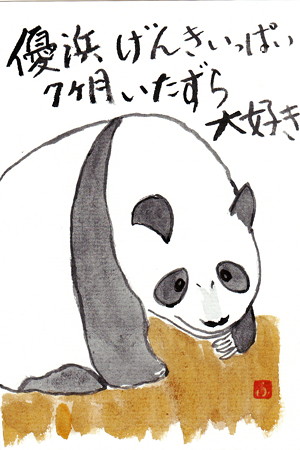 優浜 げんきいっぱい
7ヶ月 いたずら
大好き